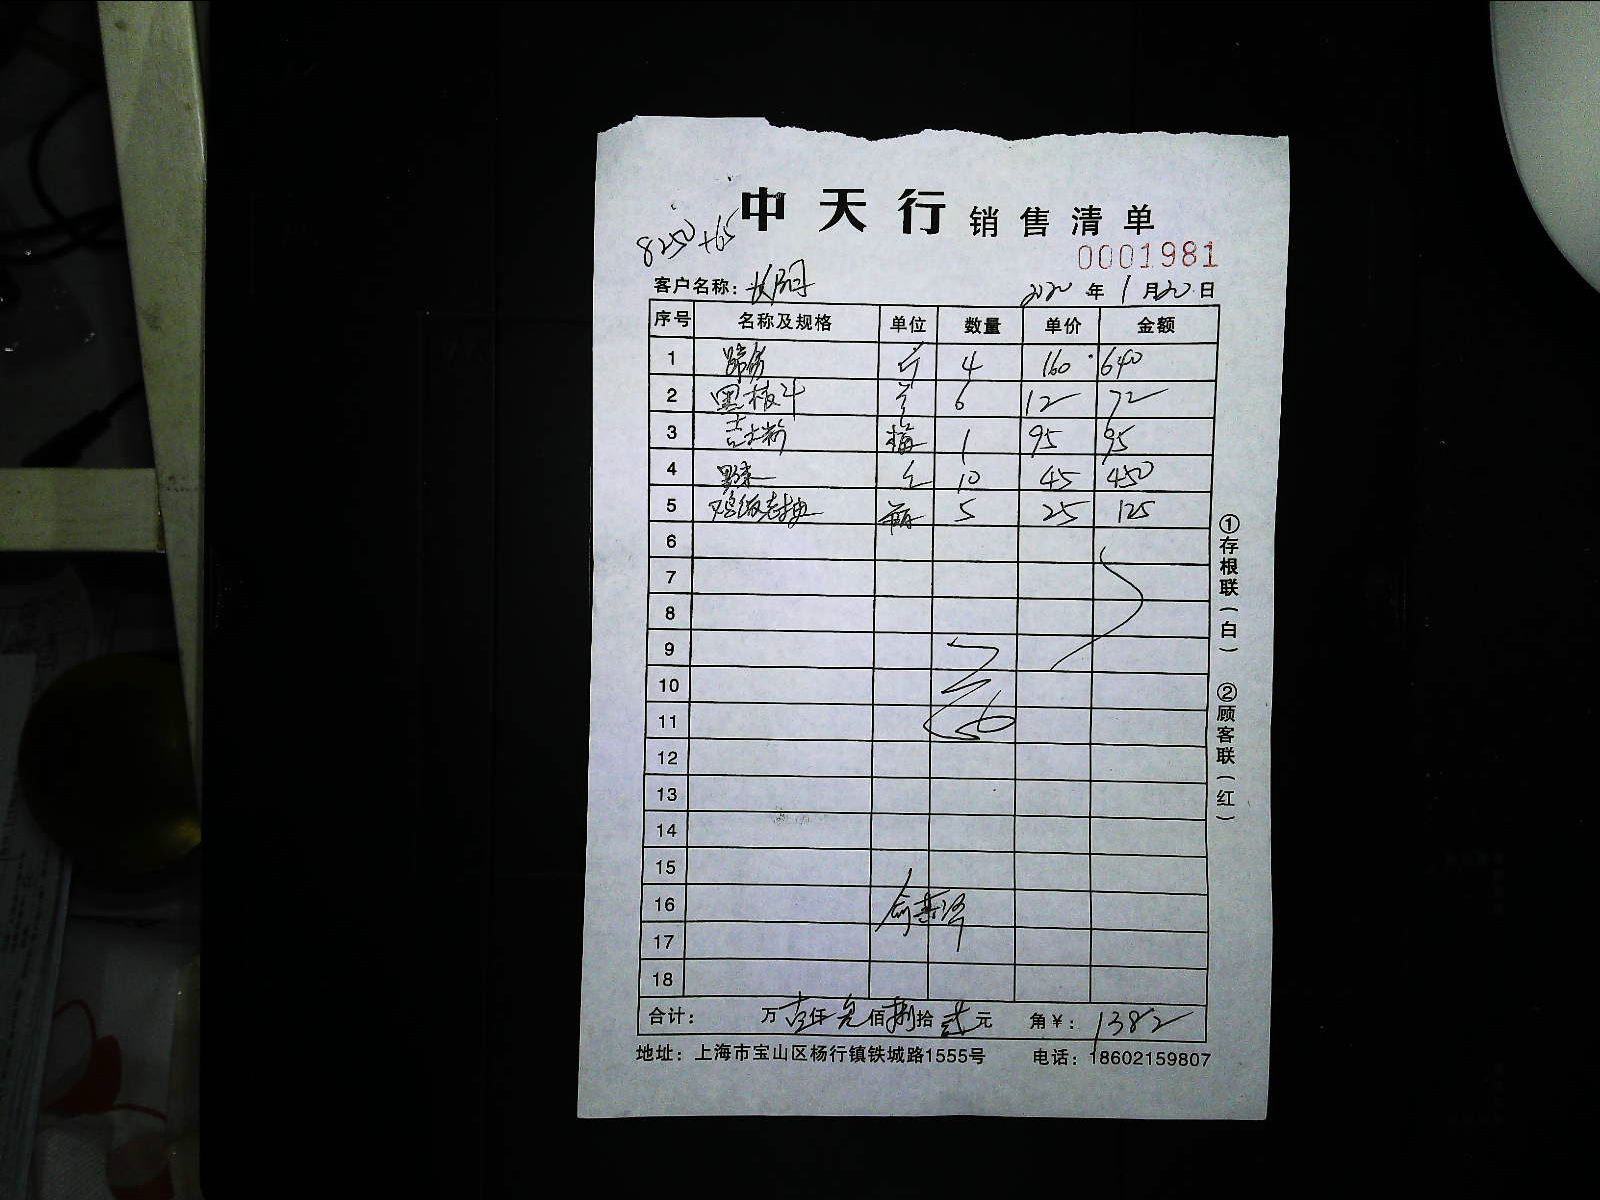 中天行 销售清单
8250+65
0001981
客户名称: 2020年1月20日
序号 名称及规格 单位 数量 单价 金额
1 蹄筋 斤 4 160 640
2 黑板斗 6 12 72
3 吉士粉 桶 1 95 95
4 10 45 450
5 鸡饭老抽 瓶 5 25 125
6
7
8
9
10
11
12
13
14
15
16
17
18
合计: 万壹仟 佰捌拾贰元 角¥: 1382
地址: 上海市宝山区杨行镇铁城路1555号 电话: 18602159807
①存根联(白) ②顾客联(红)